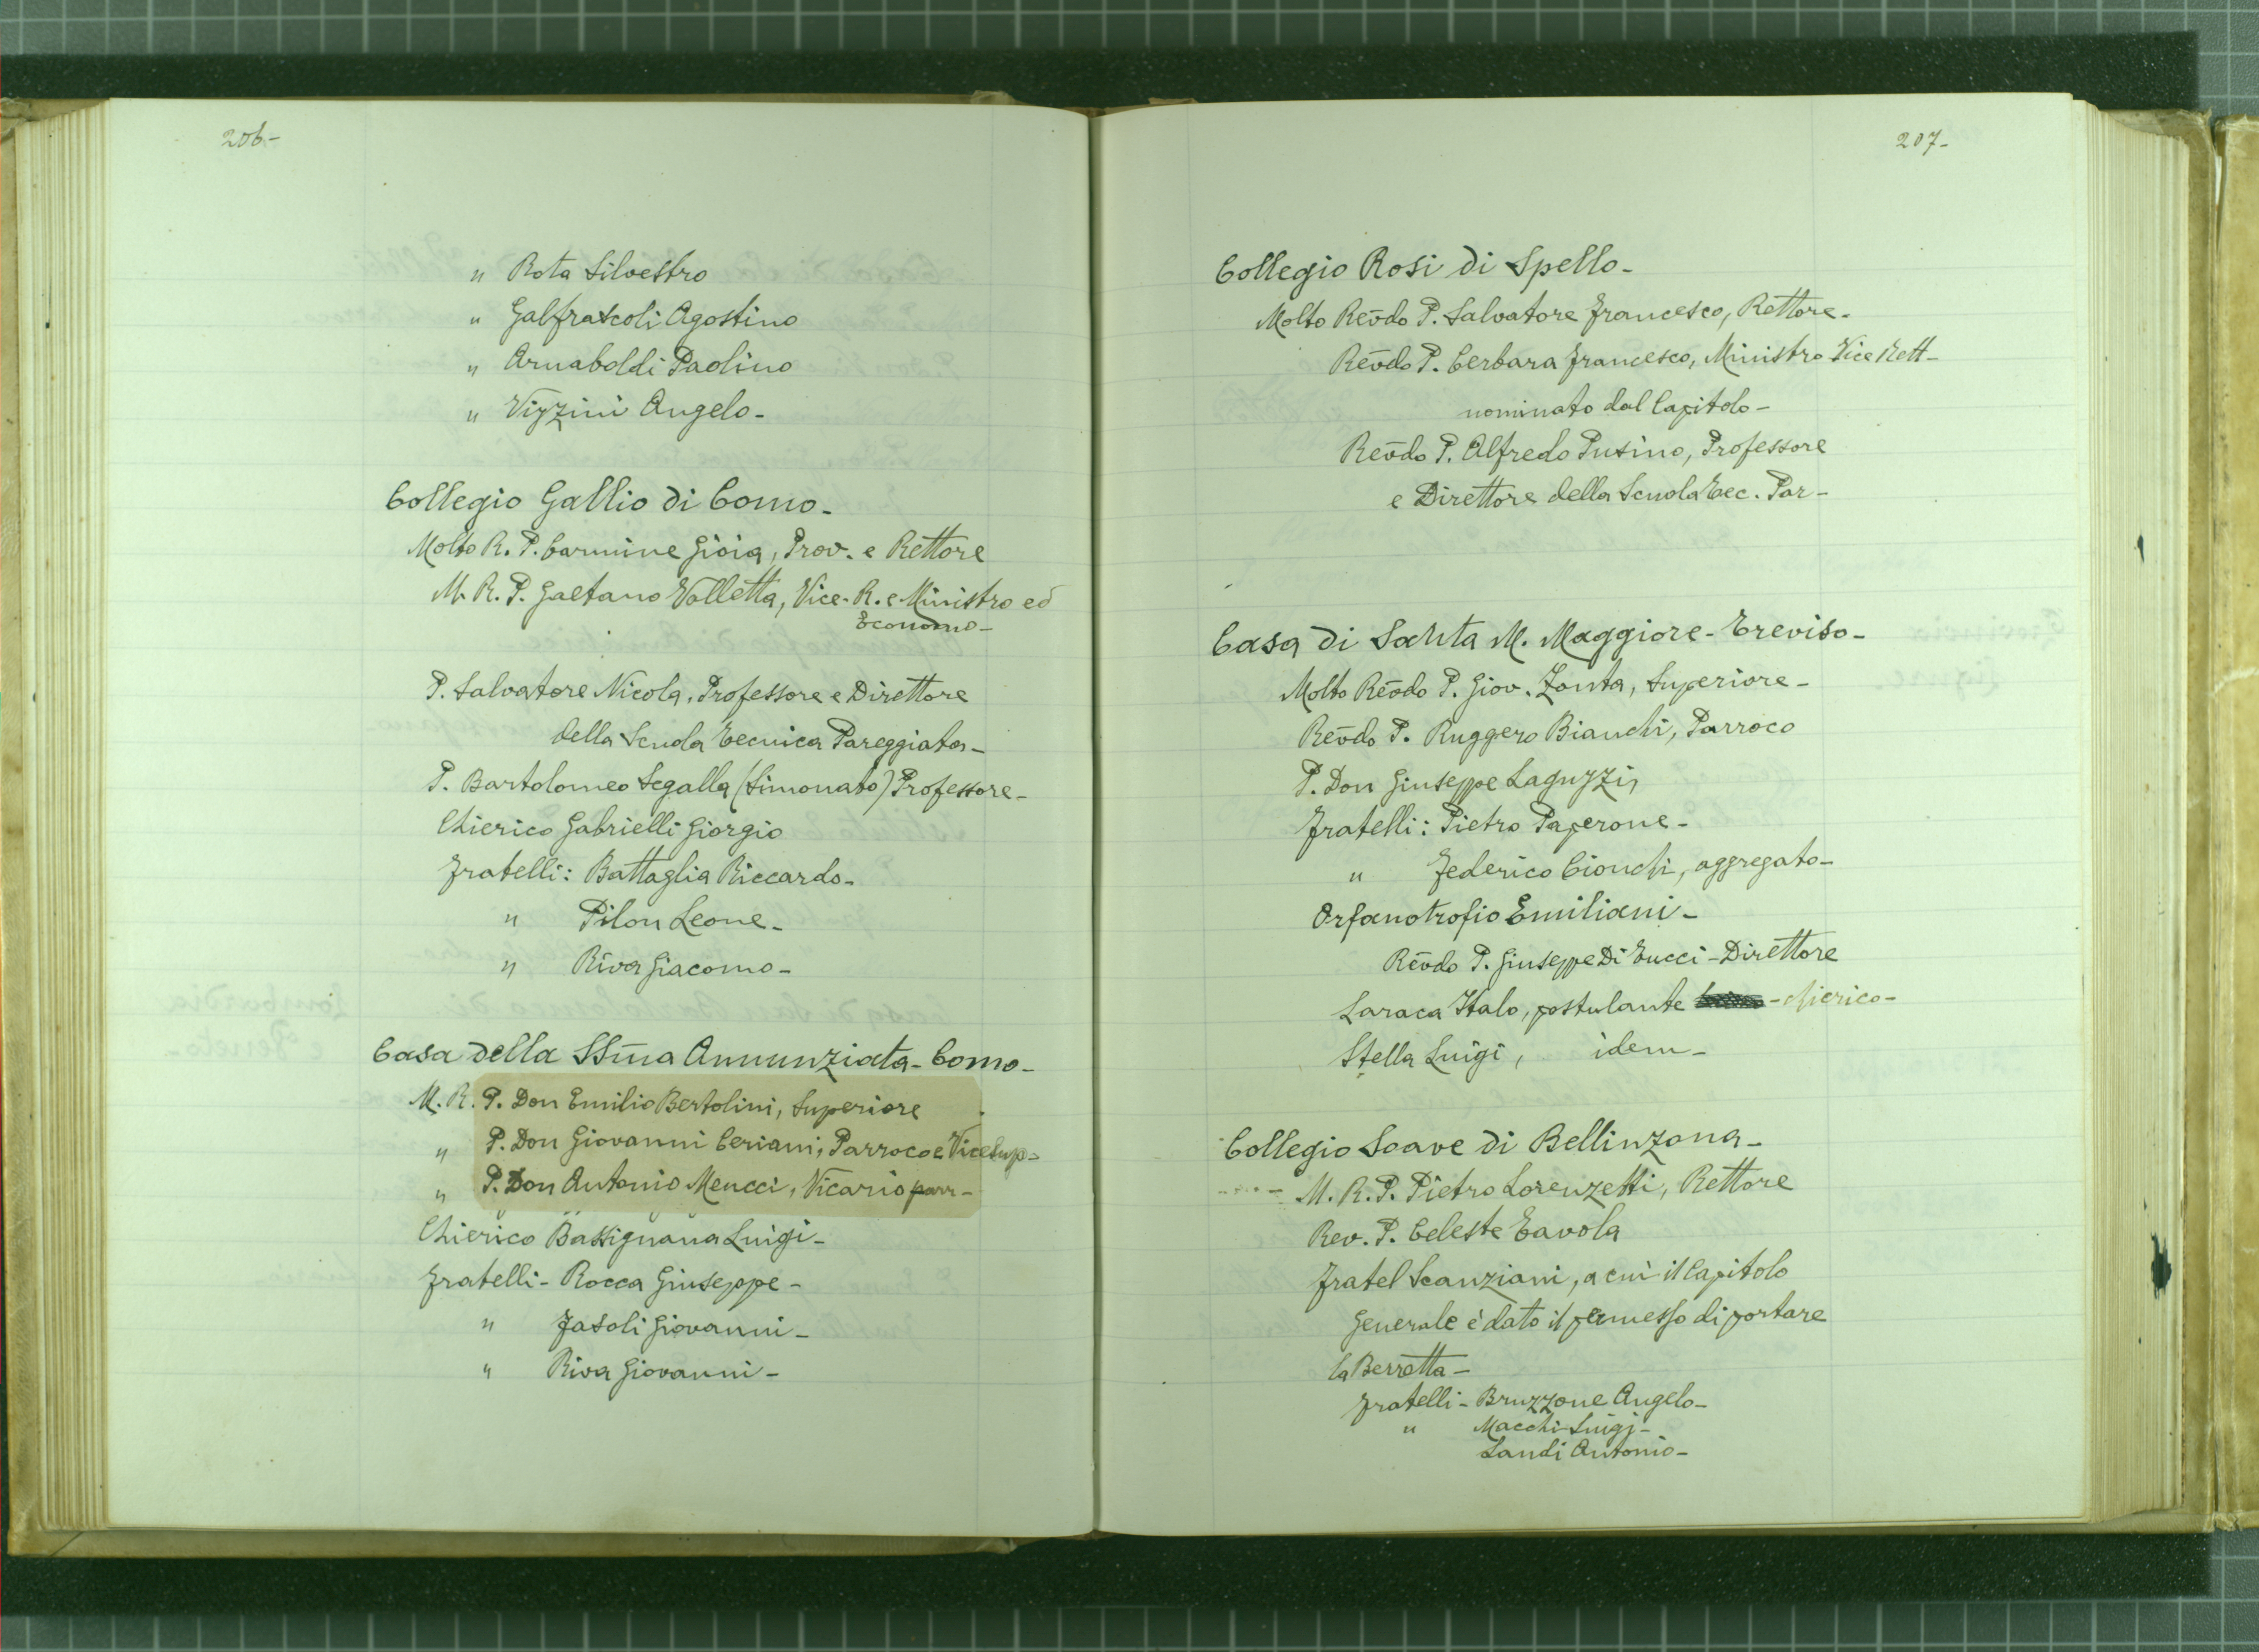 206-
" Rota Silvestro
" Galfrascoli Agostino
" Arnaboldi Paolino
" Vizzini Angelo-
Collegio Gallio di Como-
Molto R. P. Carmine Gioia, Prov. e Rettore
M. R. P. Gaetano Valletta, Vice-R. e Ministro ed
Economo-
P. Salvatore Nicola, Professore e Direttore
della Scuola Tecnica Pareggiata-
P. Bartolomeo Segalla (Simonato) Professore-
Chierico Gabrielli Giorgio
Fratelli: Battaglia Riccardo-
" Pilon Leone-
" Riva Giacomo-
Casa della SSm̄a Annunziata-Como-
M. R. P. Don Emilio Bertolini, Superiore
" P. Don Giovanni Ceriani, Parroco e Vice Sup-
" P. Don Antonio Meucci, Vicario parr-
Chierico Bassignana Luigi-
Fratelli- Rocca Giuseppe-
" Fasoli Giovanni-
" Riva Giovanni-
207-
Collegio Rosi di Spello-
Molto Rev̄do P. Salvatore Francesco, Rettore-
Rev̄do P. Cerbara Francesco, Ministro Vice Rett-
nominato dal Capitolo-
Rev̄do P. Alfredo Pusino, Professore
e Direttore della Scuola Tec. Par-
Casa di Santa M. Maggiore-Treviso-
Molto Rev̄do P. Giov. Zonta, Superiore-
Rev̄do P. Ruggero Bianchi, Parroco
P. Don Giuseppe Laguzzi,
Fratelli: Pietro Paperone-
" Federico Cionchi, aggregato-
Orfanotrofio Emiliani-
Rev̄do P. Giuseppe Di Tucci-Direttore
Laraca Italo, postulante -chierico-
Stella Luigi, idem-
Collegio Soave di Bellinzona-
M. R. P. Pietro Lorenzetti, Rettore
Rev. P. Celeste Tavola
Fratel Scanziani, a cui il Capitolo
Generale è dato il permesso di portare
la Berretta-
Fratelli- Bruzzone Angelo-
" Macchi Luigi-
Landi Antonio-